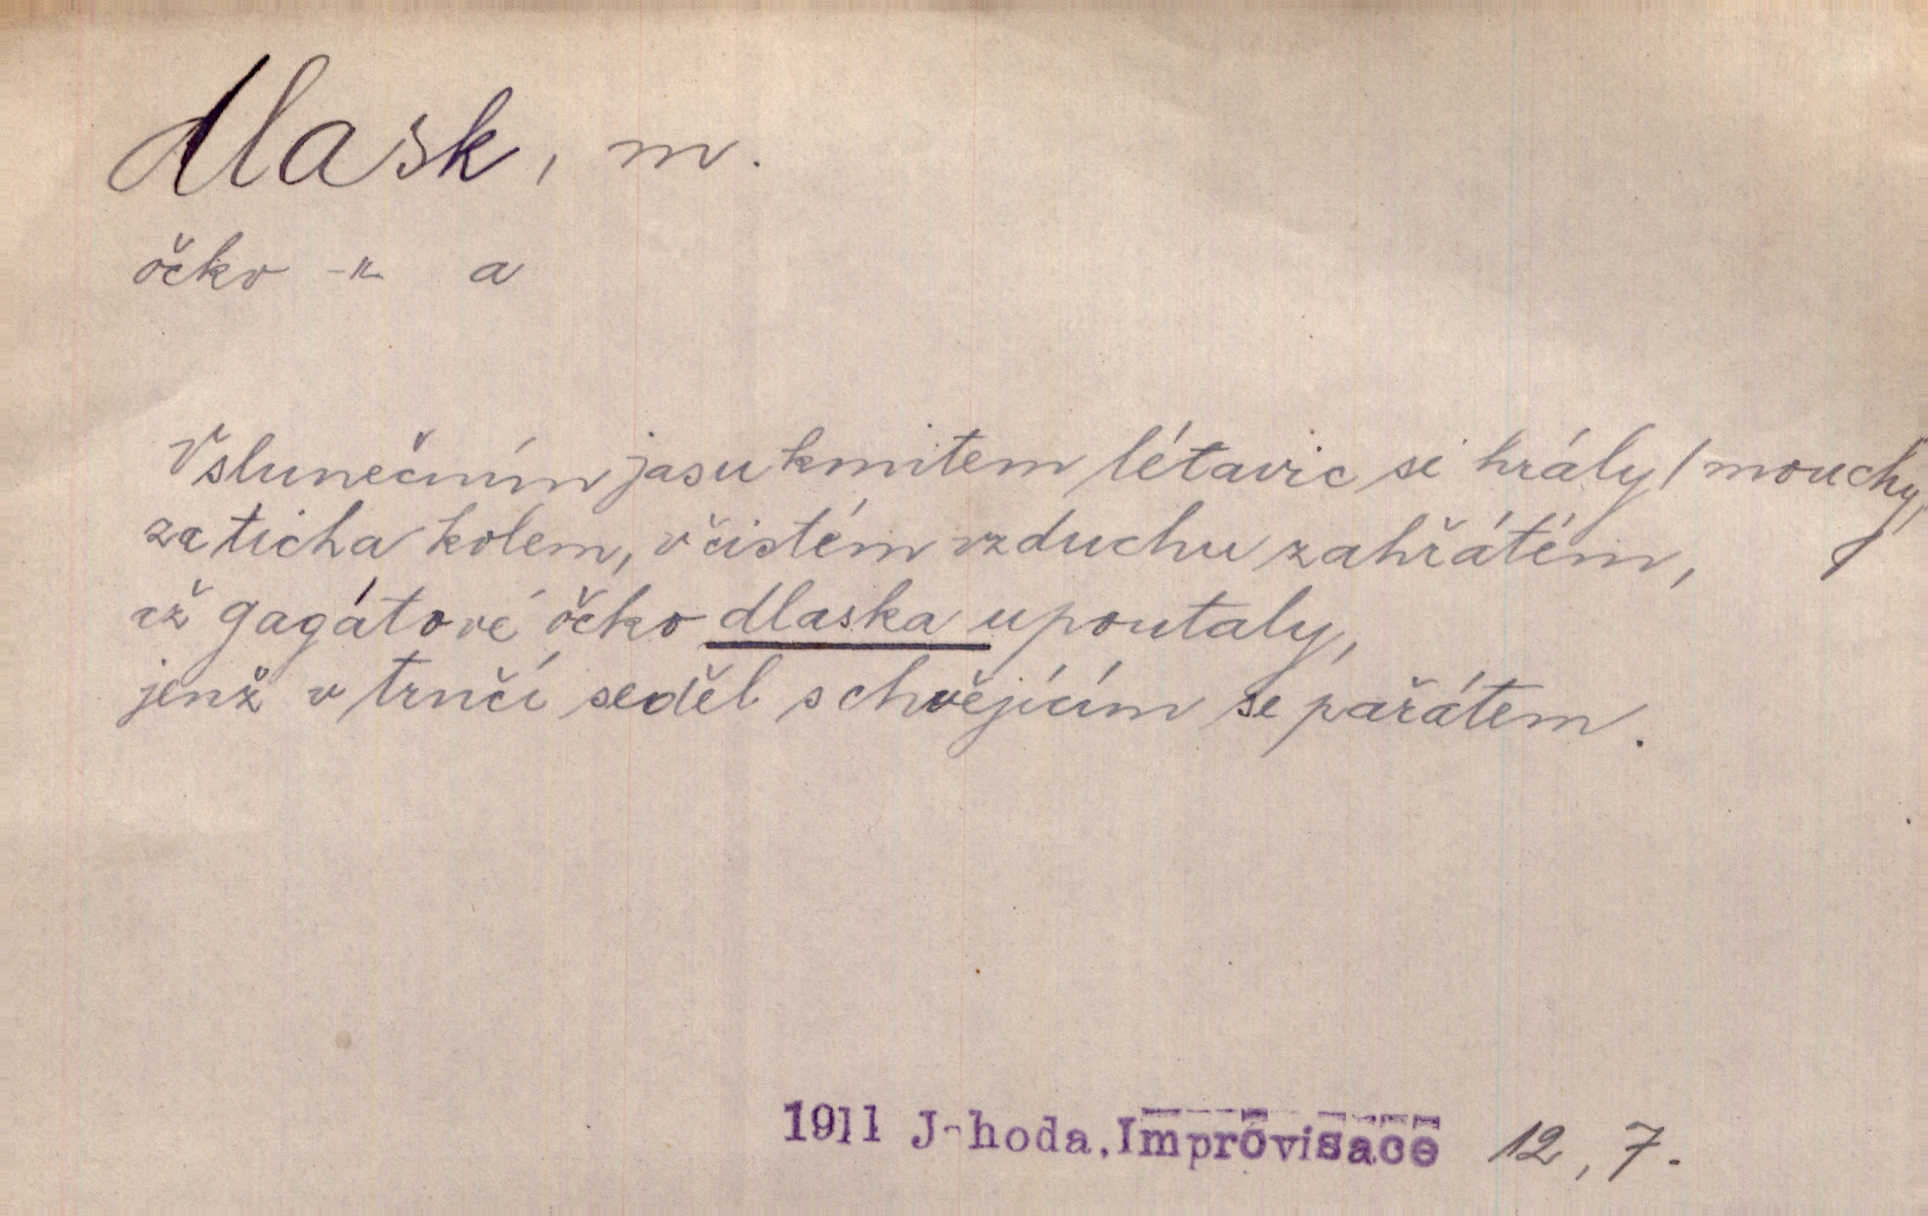 dlask, m.
očko -"- a
V slunečním jasu kmitem létavic si hrály / mouchy,
za ticha kolem, v čistém vzduchu zahřátém,
až gagátové očko dlaska upoutaly,
jenž v trnčí seděl s chvějícím se pařátem.
1911 J-hoda, Improvisace 12, 7.